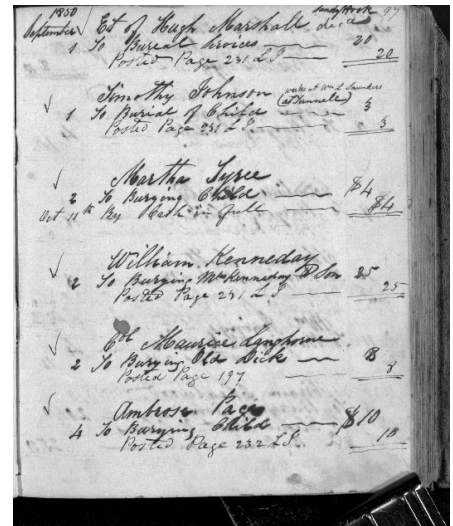 1850 Sandy Hook 97
September Est of Hugh Marshall decd
1 To Bureal Services 20
Posted Page 231 L S 20
Timothy Johnson works at Wm L Saunders (at Tunnele)
1 To Burial of Child 3
Posted Page 231 L S. 3
Martha Tyree
2 To Burying Child $4
Oct 11th By Cash in full $4
William Kenneday
2 To Burying Mrs Kenneday & Son 25
Posted Page 231 L S 25
Col Maurice Langhorne
2 To Burying Old Dick 8
Posted Page 197 8
Ambrose Page
4 To Burying Child $10
Posted Page 232 L S. 10